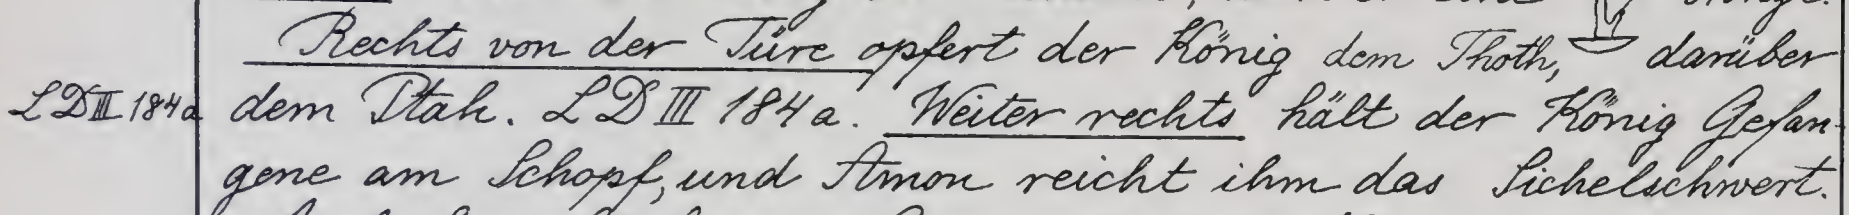 Rechts von der Türe opfert der König dem Thoth, darüber
LD III 184a dem Ptah. LD III 184a. Weiter rechts hält der König Gefan-
gene am Schopf, und Amon reicht ihm das Sichelschwert.